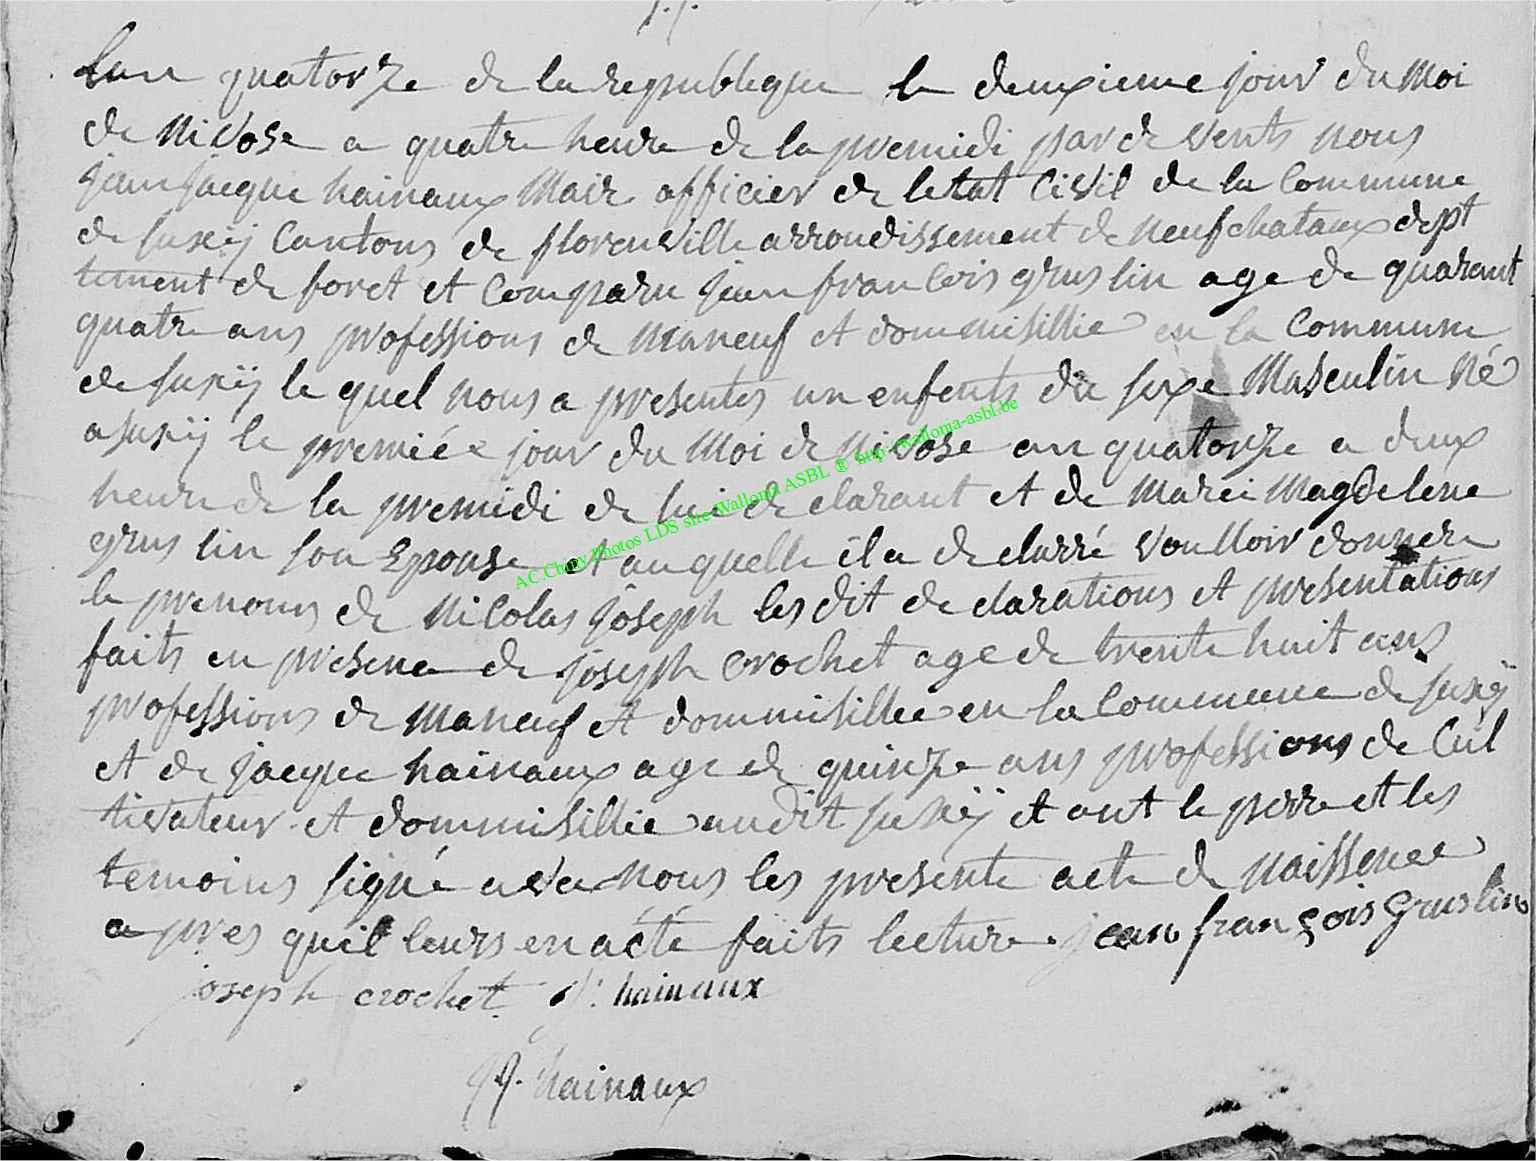 Lan quatorze de la republeque le deuxieme jour du Moi
de Nivose a quatre heure de la premidi par de vents nous
jean jacque hainaux Mair officier de letat Civil de la Commune
de suxÿ Cantons de florenville arroudissement de neufchataux dept
tement de foret et Comparu jean francois gruslin age de quarant
quatre ans professions de maneuf et dommisillie en la Commune
de suxÿ le quel nous a presentes un enfents du sexe Masculin Né
a suxÿ le premiée jour du Moi de Nivose an quatorze a deux
heure de la premidi de lui de clarant et de Marei Magdelene
grus lin son Epouse et au quelle il a de clarré voulloir donnere
le prenoms de Nicolas joseph les dit de clarations et presentations
faits en presence de joseph crochet age de trente huit ans
professions de Maneuf et dommisillee en la Commune de suxÿ
et de jacque hainaux age de quinze ans professions de Cul
tivateur et dommisillie audit suxÿ et ont le perre et les
temoins signé avec nous les presente acte de Naissence
apres quil leurs en acté faits lecture. jean françois Gruslin
joseph crochet J. hainaux
JJ. hainaux
AC Chiny Photos LDS site Wallonia ASBL @ http://wallonia-asbl.be